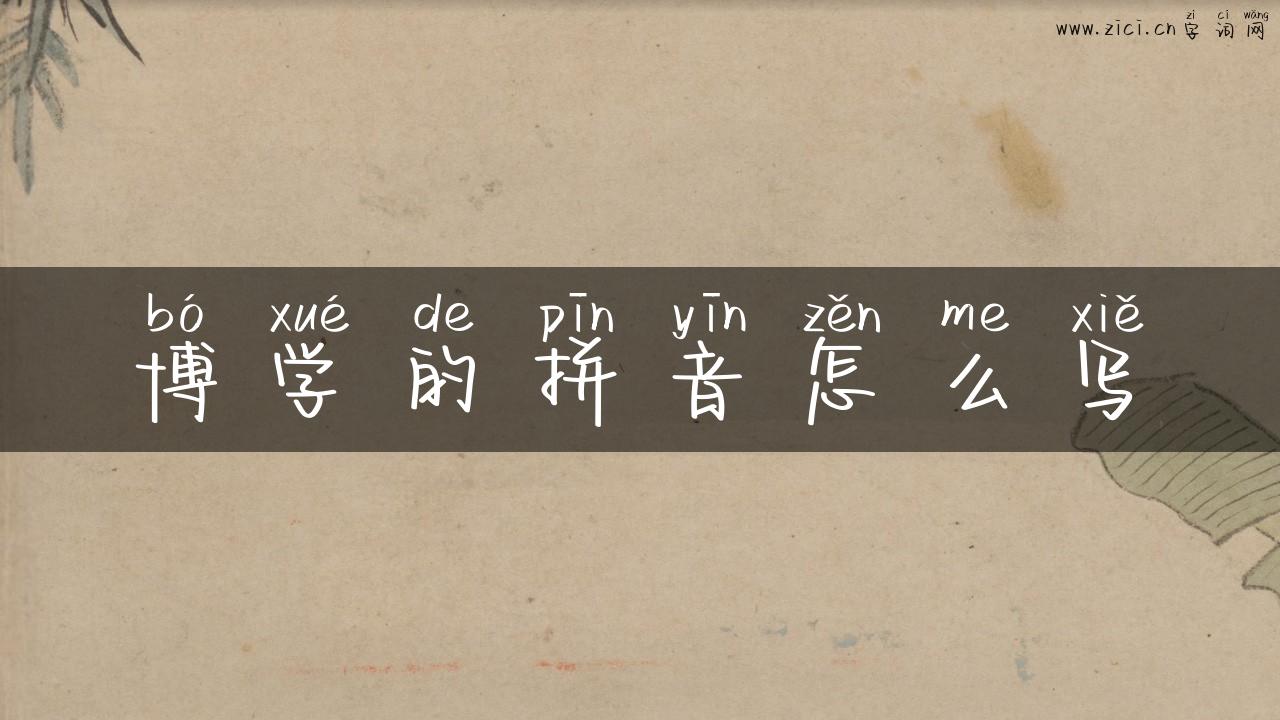 zì cí wǎng
www.zici.cn 字词网
bó xué de pīn yīn zěn me xiě
博学的拼音怎么写